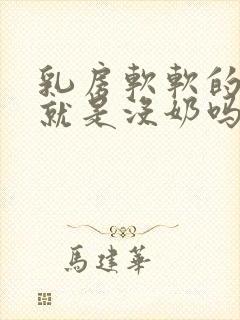 乳房軟軟的
就是沒奶嗎
馬建華